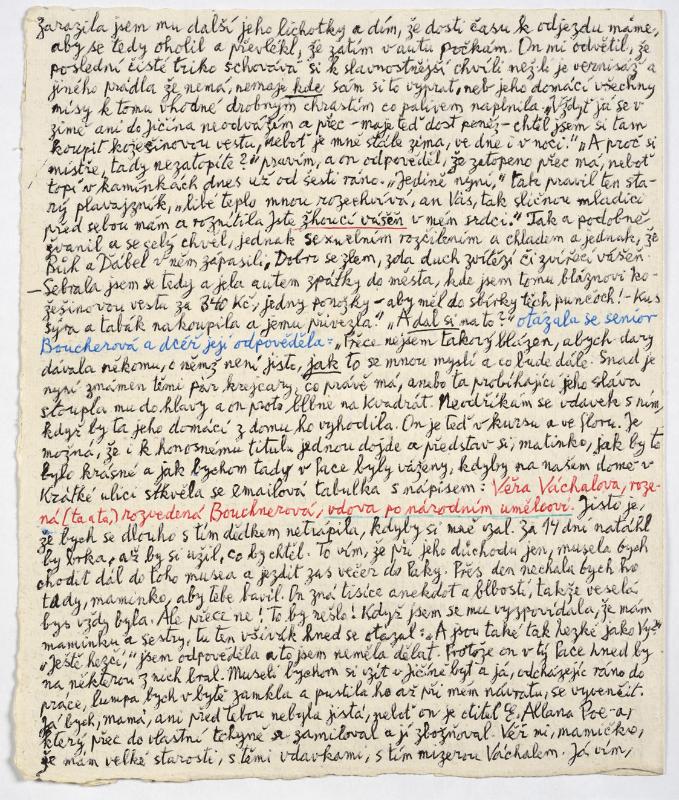 zarazila jsem mu další jeho lichotky a dím, že dosti času k odjezdu máme,
aby se tedy oholil a převlékl, že zatím v autu počkám. On mi odvětil, že
poslední čisté triko schovává si k slavnostnější chvíli nežli je vernisáž a
jiného prádla že nemá, nemaje kde sám si to vyprat, neb jeho domácí všechny
mísy k tomu vhodné drobným chrastím co palivem naplnila. „Vždyť já se v
zimě ani do Jičína neodvážím a přec – maje teď dost peněz – chtěl jsem si tam
koupit kožešinovou vestu, neboť je mně stále zima, ve dne i v noci." „A proč si
mistře, tady nezatopíte?" pravím, a on odpověděl, že zatopeno přec má, neboť
topí v kamínkách dnes už od šesti ráno. „Jedině nyní," tak pravil ten sta-
rý plavajzník, „libé teplo mnou rozechvívá, an Vás, tak sličnou mladici
před sebou mám a roznítila jste žhoucí vášeň v mém srdci." Tak a podobně
žvanil a se celý chvěl, jednak sexuelním rozčílením a chladem a jednak, že
Bůh a Ďábel v něm zápasili, Dobro se zlem, zda duch zvítězí či zvířecí vášeň.
– Sebrala jsem se tedy a jela autem zpátky do města, kde jsem tomu bláznovi ko-
žešinovou vestu za 340 Kč, jedny ponožky – aby měl do sbírky těch punčoch! – kus
sýra a tabák nakoupila a jemu přivezla." „A dal si na to?" otázala se senior
Boucherová a dcéř její odpověděla: „Přece nejsem takový blázen, abych dary
dávala někomu, o němž není jisto, jak to se mnou myslí a co bude dále. Snad je
nyní zmámen těmi pár krejcary, co právě má, anebo ta probíhající jeho sláva
stoupla mu do hlavy a on proto blbne na kvadrát. Neodříkám se vdavek s ním,
když by ta jeho domácí z domu ho vyhodila. On je teď v kursu a ve floru. Je
možná, že i k honosnému titulu jednou dojde a představ si, matinko, jak by to
bylo krásné a jak bychom tady v Pace byly váženy, kdyby na našem domě v
Krátké ulici skvěla se emailová tabulka s nápisem: Věra Váchalova, roze-
ná (ta a ta,) rozvedená Bouchnerová, vdova po národním umělcovi. Jisto je,
že bych se dlouho s tím dědkem netrápila, kdyby si mně vzal. Za 14 dní natáhl
by brka, až by si užil, co by chtěl. To vím, že při jeho důchodu jen, musela bych
chodit dál do toho musea a jezdit zas večer do Paky. Přes den nechala bych ho
tady, maminko, aby tebe bavil. On zná tisíce anekdot a blbostí, takže veselá
bys vždy byla. Ale přece ne! To by nešlo! Když jsem se mu vyzpovídala, že mám
maminku a sestry, tu ten všivák hned se otázal: „A jsou také tak hezké jako Vy?"
„Ještě hezčí," jsem odpověděla a to jsem neměla dělat. Protože on v tý Pace hned by
na některou z nich bral. Museli bychom si vzít v Jičíně byt a já, odcházejíc ráno do
práce, lumpa bych v bytě zamkla a pustila ho až při mém návratu, se vyvenčit.
Já bych, mamá, ani před tebou nebyla jistá, neboť on je ctitel E. Allana Poe-a,
který přec do vlastní tchyně se zamiloval a jí zbožňoval. Věř mi, mamičko,
že mám velké starosti, s těmi vdavkami, s tím mizerou Váchalem. Já vím,